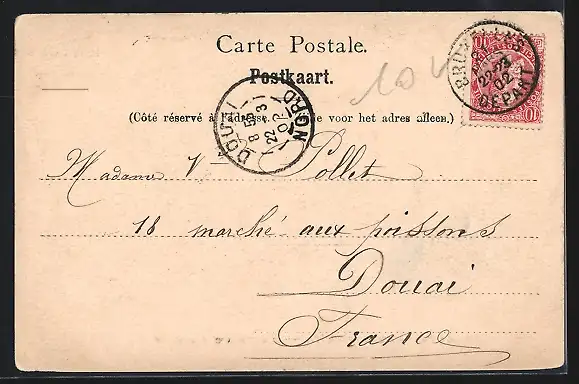 Carte Postale.
Postkaart.
(Côté réservé à l'adresse. voor het adres alleen.)
104
BRUXELLES
22
02
DEPART
DOUAI
8 E
22 3
02
NORD
10 10
Madame V Pollet
18 marché aux poissons
Douai
France